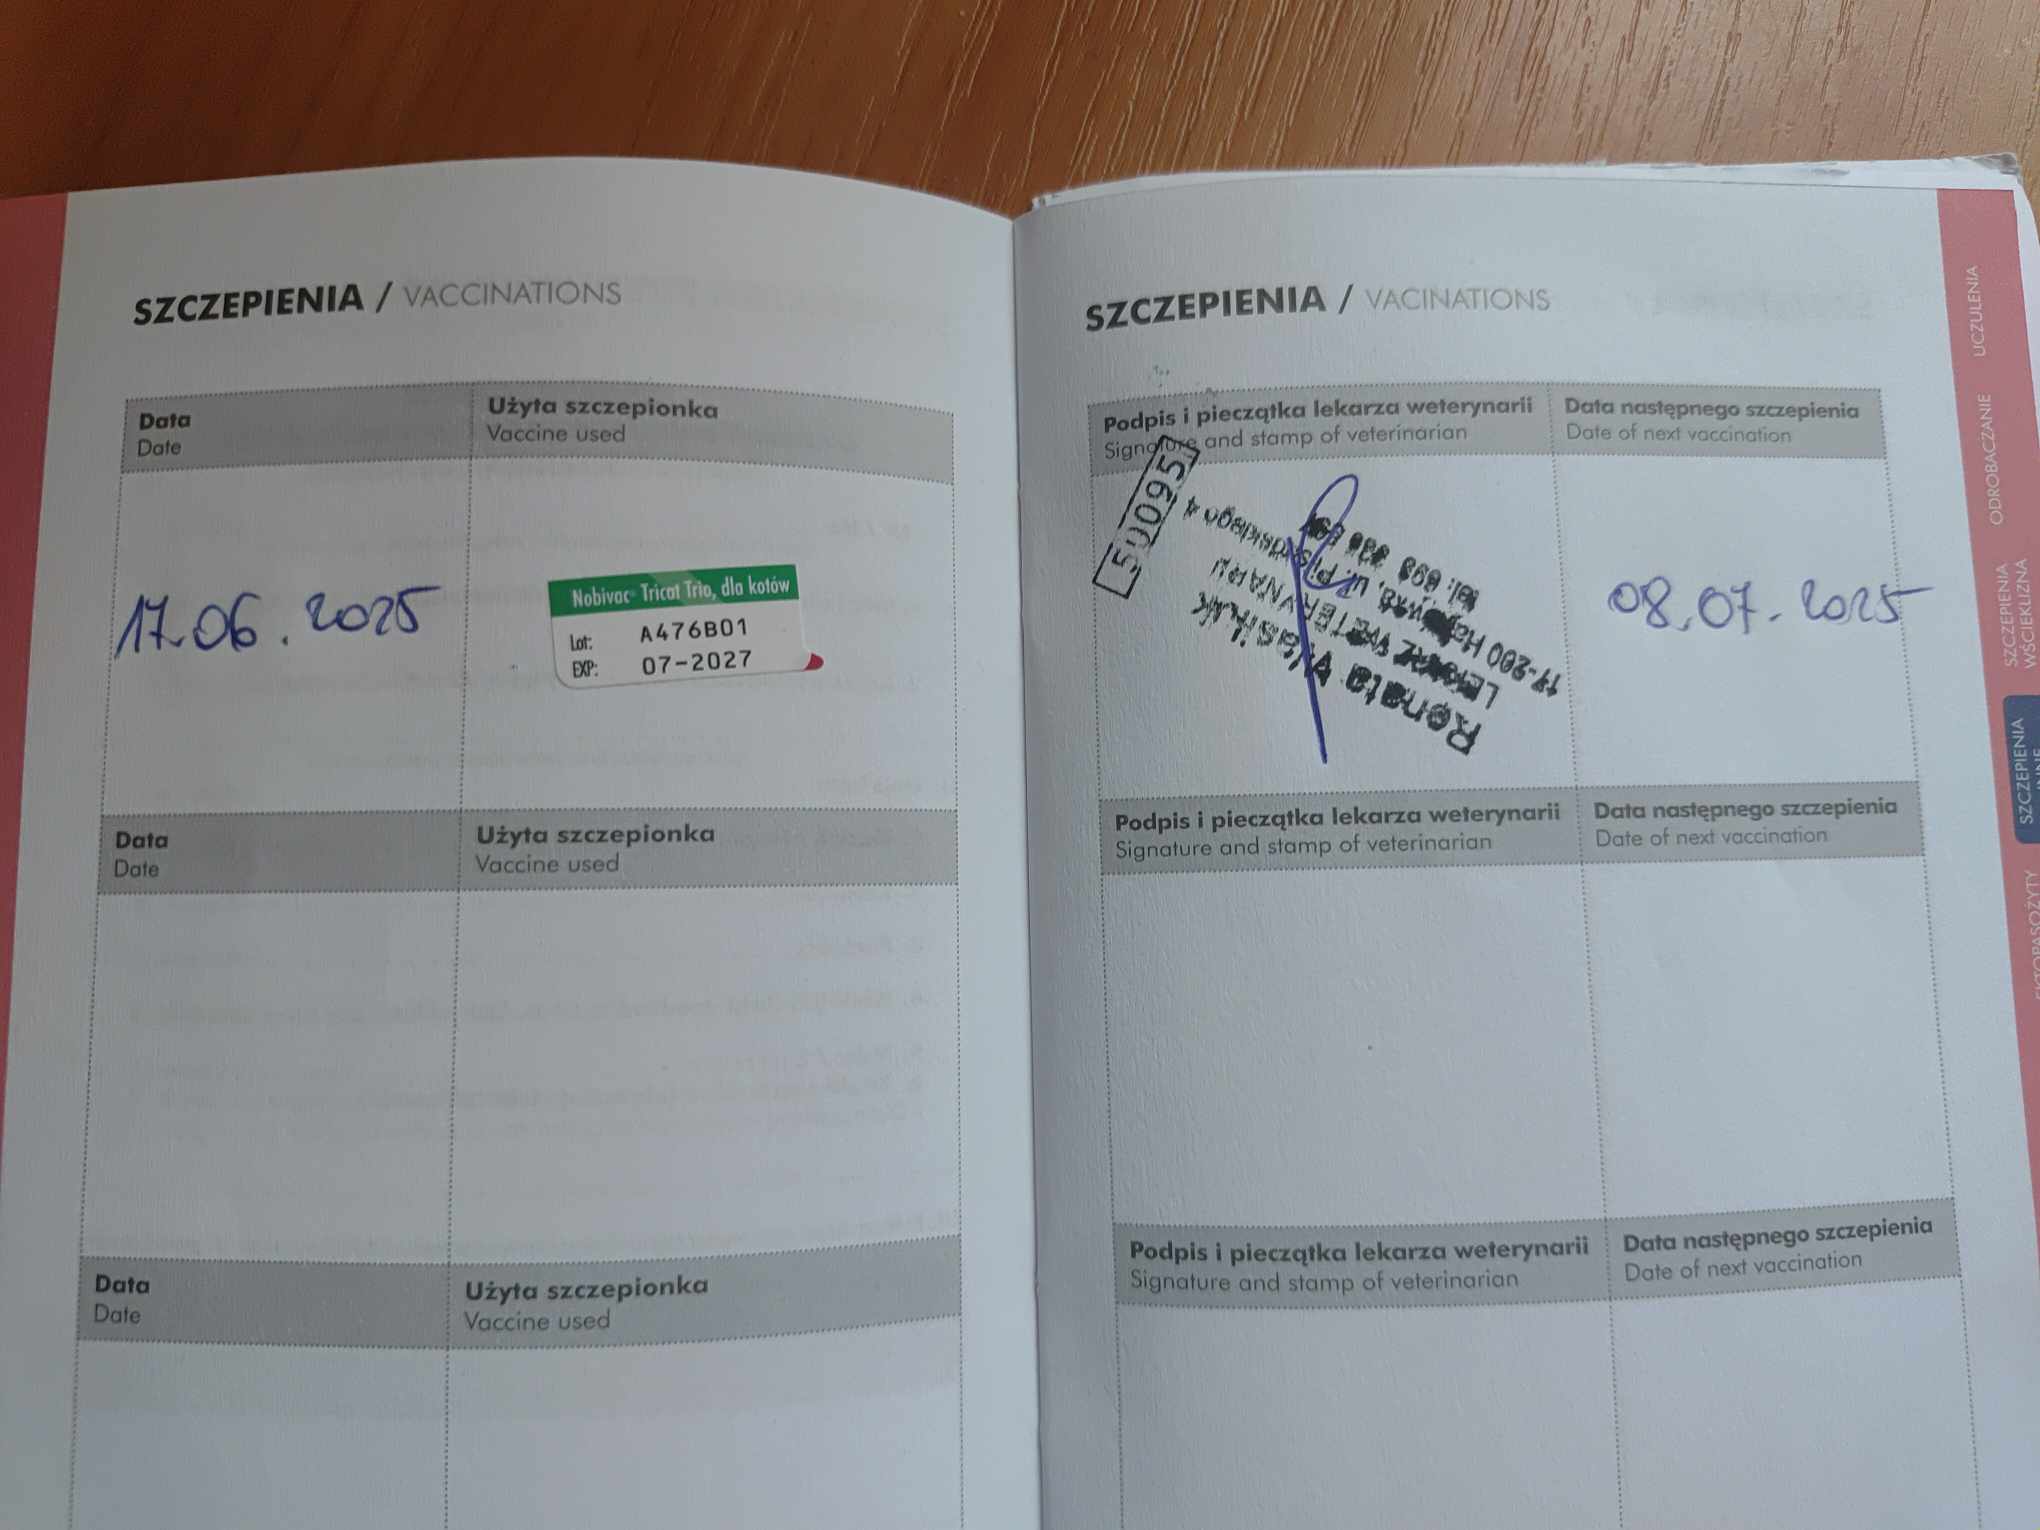 SZCZEPIENIA / VACCINATIONS
Data
Date
Użyta szczepionka
Vaccine used
17.06.2025
Nobivac Tricat Trio, dla kotów
Lot: A476B01
EXP: 07-2027
Data
Date
Użyta szczepionka
Vaccine used
Data
Date
Użyta szczepionka
Vaccine used
SZCZEPIENIA / VACINATIONS
Podpis i pieczątka lekarza weterynarii
Signature and stamp of veterinarian
Data następnego szczepienia
Date of next vaccination
500095
Renata
17-200 ul. Piłsudskiego 4
tel. 698
08.07.2025
Podpis i pieczątka lekarza weterynarii
Signature and stamp of veterinarian
Data następnego szczepienia
Date of next vaccination
Podpis i pieczątka lekarza weterynarii
Signature and stamp of veterinarian
Data następnego szczepienia
Date of next vaccination
UCZULENIA
ODROBACZANIE
SZCZEPIENIA
WŚCIEKLIZNA
SZCZEPIENIA